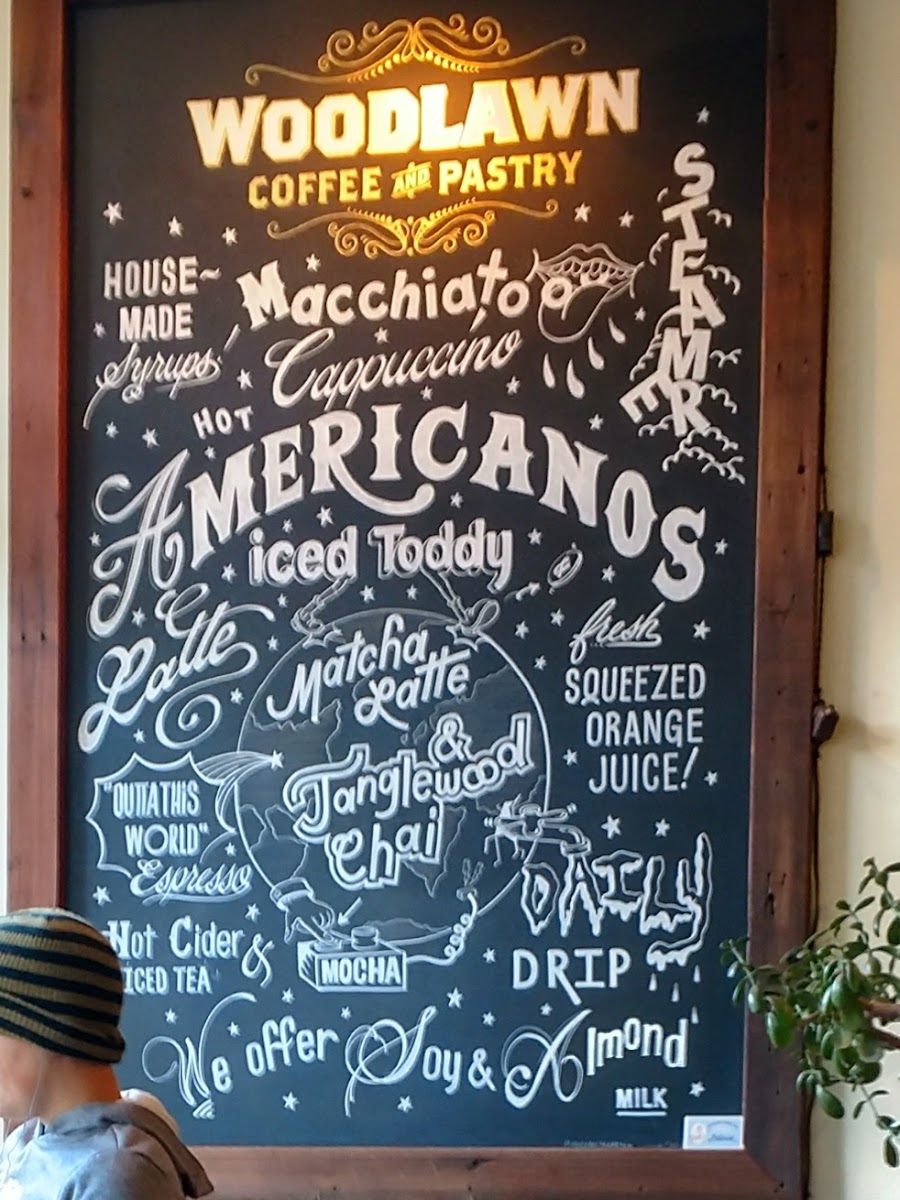 WOODLAWN
COFFEE AND PASTRY
STEAMER
HOUSE~
MADE
Syrups!
Macchiato
Cappuccino
HOT
AMERICANOS
iced Toddy
Latte
Matcha
Latte
&
Tanglewood
Chai
fresh
SQUEEZED
ORANGE
JUICE!
"OUTTA THIS
WORLD"
Espresso
DAILY
DRIP
Hot Cider &
ICED TEA
MOCHA
We offer Soy & Almond
MILK